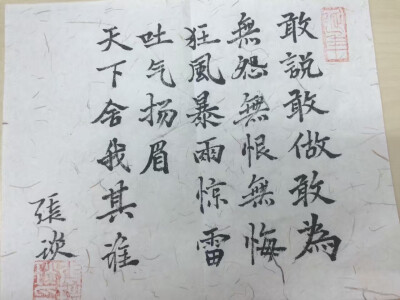 敢説敢做敢為
無怨無恨無悔
狂風暴雨惊雷
吐气扬眉
天下舍我其谁
張琰